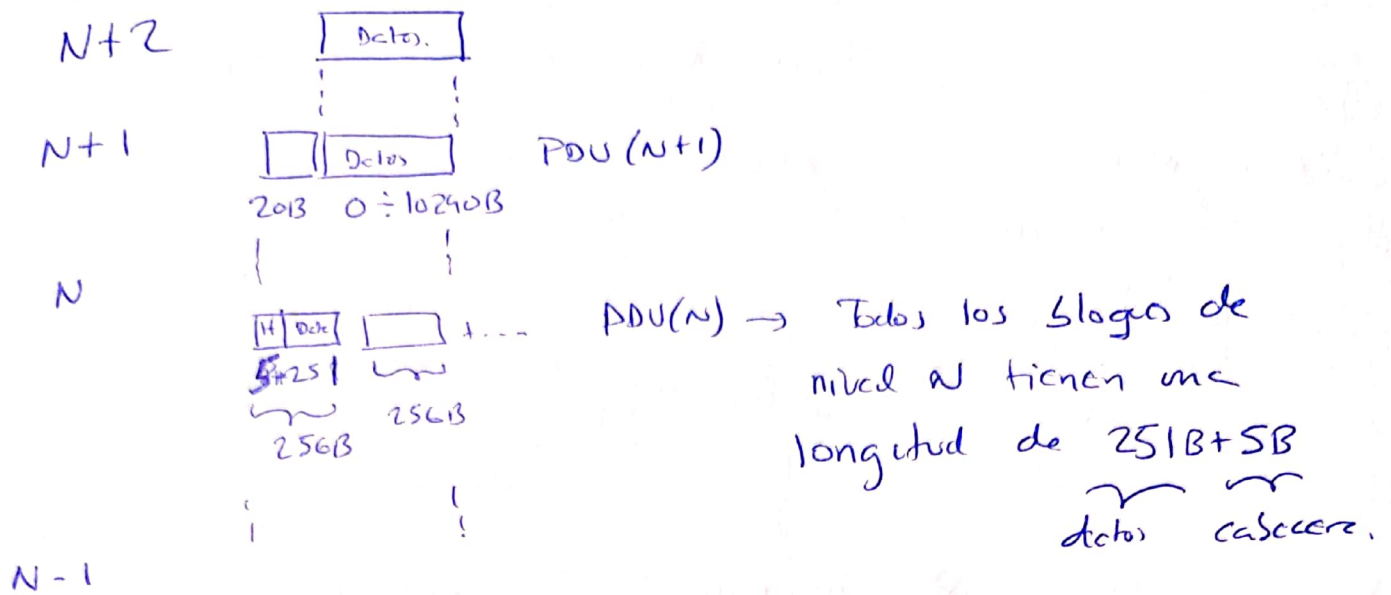 N+2
Datos.
N+1
Datos
PDU (N+1)
20B 0÷10240B
N
H Dat
+ ....
PDU(N) → Todos los bloques de
nivel N tienen una
longitud de 251B+5B
datos cabecera.
5+251
256B
256B
N-1